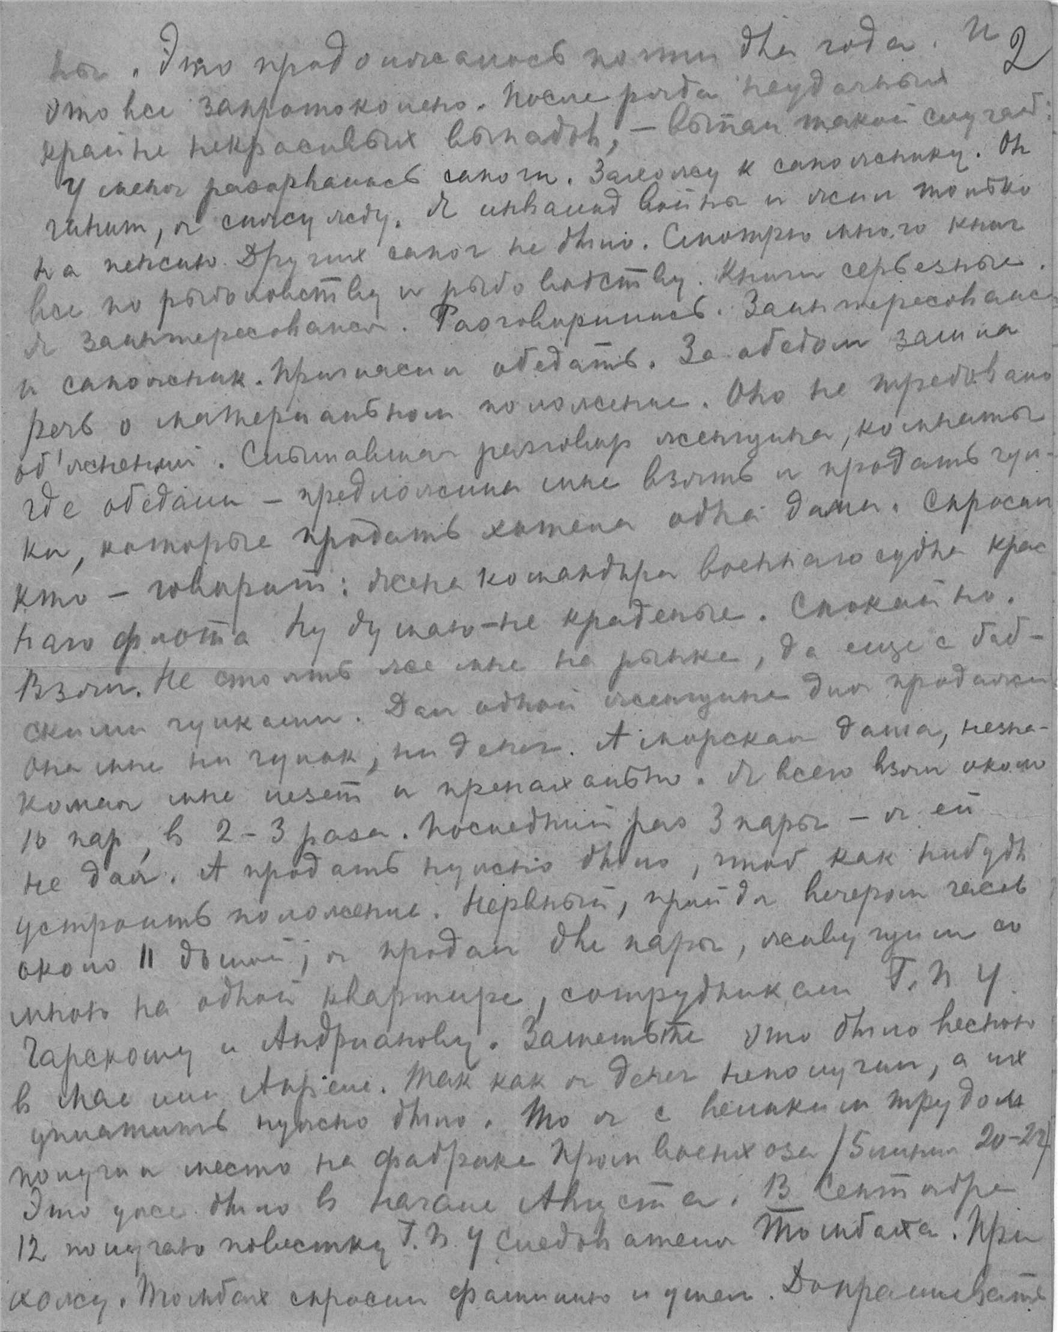 2
ны. Это продолжалось почти два года. И
это все запротоколено. После ряда неудачных
крайне некрасивых выпадов, – выпал такой случай:
У меня разорвались сапоги. Захожу к сапожнику. Он
чинит, я сижу жду. Я инвалид войны и жил только
на пенсию. Других сапог не было. Смотрю много книг
все по рыболовству и рыбоводству. Книги серьезные.
Я заинтересовался. Разговорились. Заинтересовался
и сапожник. Пригласил обедать. За обедом зашла
речь о материальном положение. Оно не требовало
об'яснений. Слышавшая разговор женщина, комнаты
где обедали – предложила мне взять и продать чул-
ки, которые продать хотела одна дама. Спросил
кто – говорит: жена командира военнаго судна крас
наго флота Ну думаю – не краденые. Спокойно.
Взял. Не стоять же мне на рынке, да еще с баб-
скими чулками. Дал одной женщине для продажи
она мне ни чулок, ни денег. А морская дама, незна-
комая мне лезет и пренахально. Я всего взял около
10 пар, в 2-3 раза. Последний раз 3 пары – я ей
не дал. А продать нужно было, чтоб как нибудь
устроить положение. Нервный, прийдя вечером часов
около 11 домой; я продал две пары, живущим со
мною на одной квартире, сотрудникам Г.П.У.
Чарскому и Андрианову. Заметьте это было весною
в мае или Апреле. Так как я денег неполучил, а их
уплатить нужно было. То я с великим трудом
получил место на фабрике Промвоенхоза /5 линия 20-22/
Это уже было в начале Августа. В Сентябре
12 получаю повестку Г.П.У следователя Томбаха. При
хожу. Томбах спросил фамилию и ушел. Допрашивать